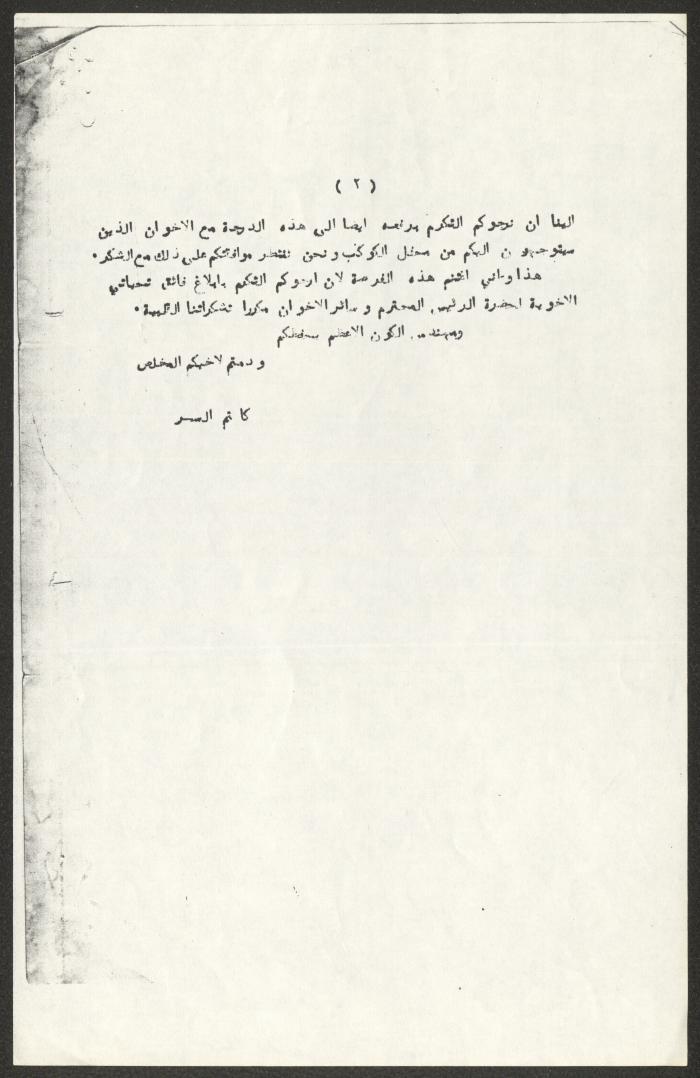 ( ٢ )
الينا ان نرجوكم التكرم برفعه ايضا الى هذه الدرجة مع الاخوان الذين
سيتوجهون اليكم من محفل الكوكب ونحن ننتظر موافقتكم على ذلك مع الشكر.
هذا وانني اغتنم هذه الفرصة لان ارجوكم التكرم بابلاغ فائق تحياتي
الاخوية لحضرة الرئيس المحترم وسائر الاخوان مكررا تشكراتنا القلبية.
ومهندس الكون الاعظم يحفظكم
ودمتم لاخيكم المخلص
كاتم السر